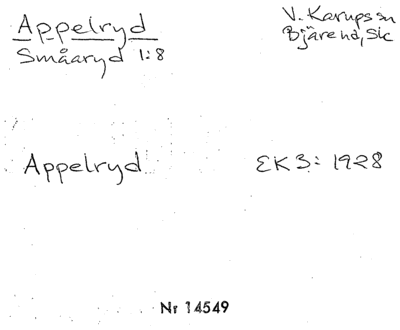 Appelryd
Småaryd 1:8
V. Karups sn
Bjärehd, Sk
Appelryd
EK 3: 1928
Nr 14549